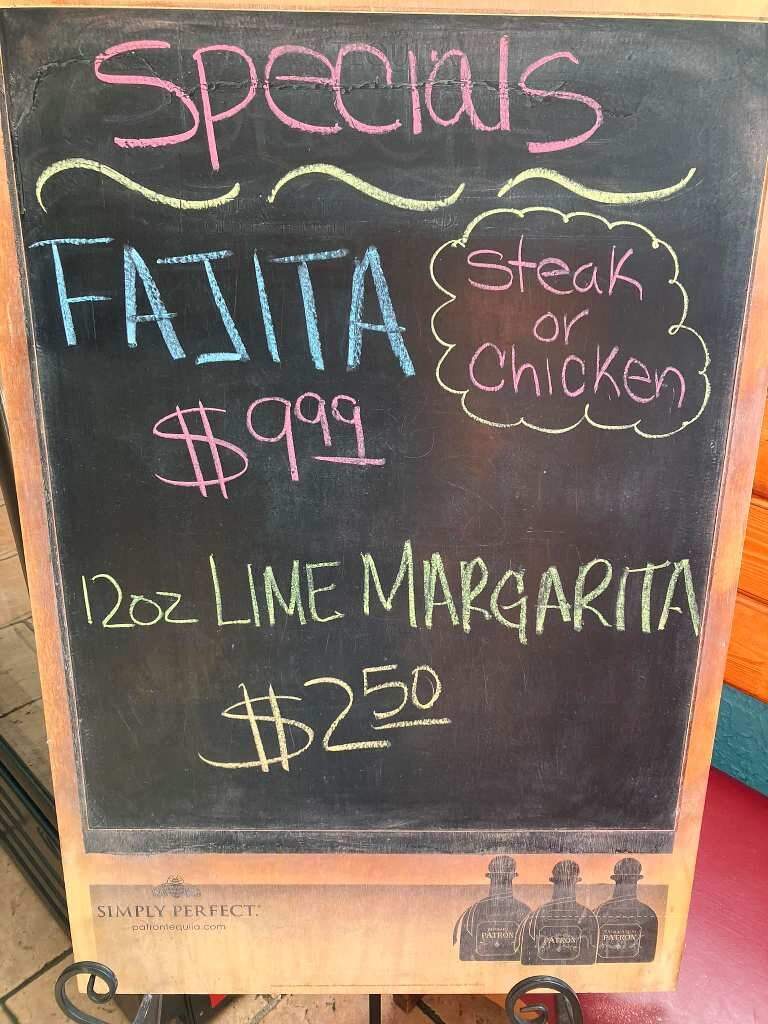 Specials
FAJITA
Steak
or
Chicken
$9.99
12oz LIME MARGARITA
$2.50
SIMPLY PERFECT.
patrontequila.com
PATRÓN
PATRÓN
PATRÓN